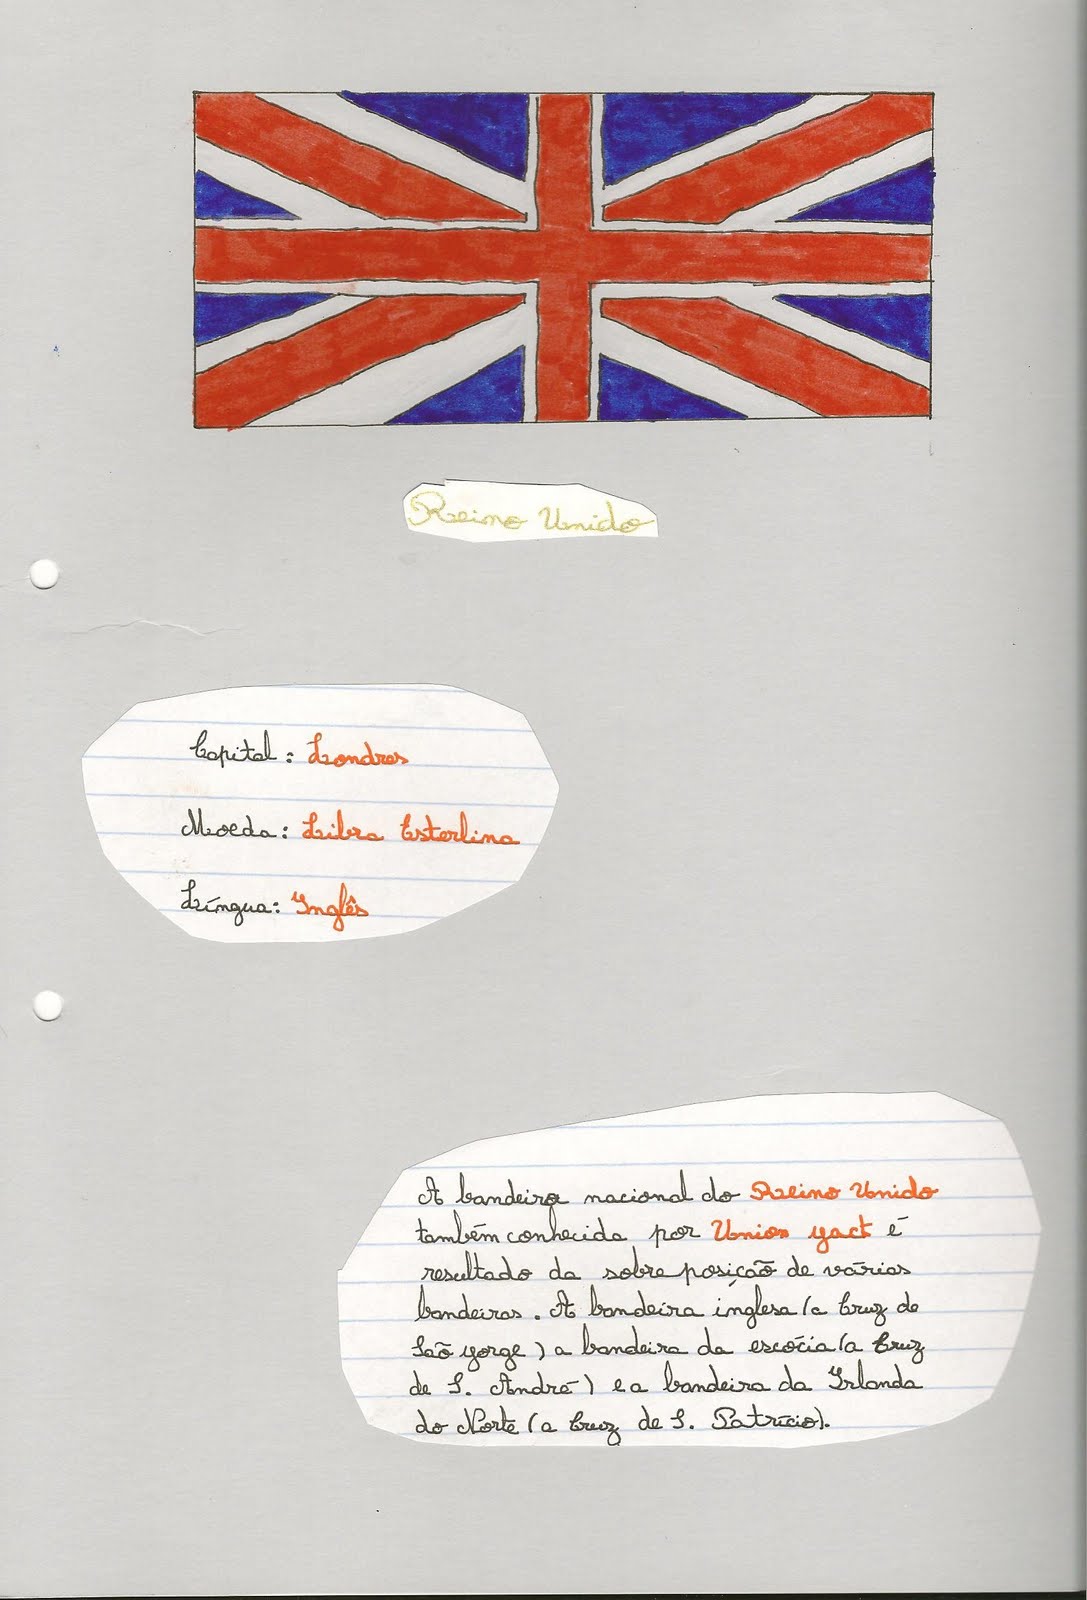 Reino Unido
Capital: Londres
Moeda: Libra Esterlina
Língua: Inglês
A bandeira nacional do Reino Unido
também conhecida por Union yact é
resultado da sobreposição de várias
bandeiras. A bandeira inglesa (a Cruz de
São yorge) a bandeira da escócia (a Cruz
de S. André) e a bandeira da Irlanda
do Norte (a Cruz de S. Patrício).